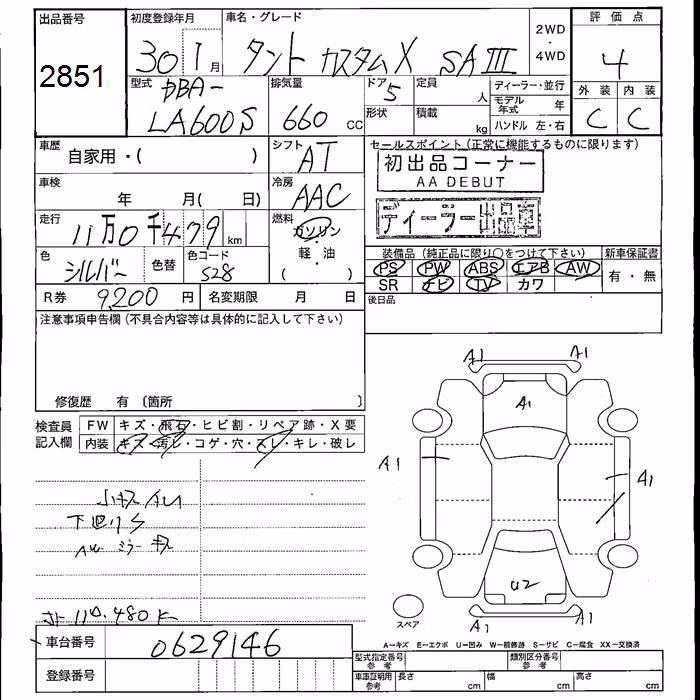 出品番号 初度登録年月 車名・グレード 2WD・4WD 評価点
2851 30 1月 タント カスタムX SAIII 4
型式 排気量 ドア 定員 ディーラー・並行 外装 内装
DBA-LA600S 660 CC 5 人 モデル年式 年 C C
形状 積載 kg ハンドル 左・右
車歴 シフト セールスポイント(正常に機能するものに限ります)
自家用・( ) AT 初出品コーナー
AA DEBUT
車検 冷房
年 月( 日) AAC ディーラー出品車
走行 燃料
11万0千479 km ガソリン
軽・油
( )
色 色替 色コード 装備品(純正品に限り○をつけて下さい) 新車保証書
シルバー 528 PS PW ABS エアB AW 有・無
SR ナビ TV カワ
R券 9200円 名変期限 月 日 後日品
注意事項申告欄(不具合内容等は具体的に記入して下さい)
修復歴 有 〔箇所 〕
検査員記入欄 FW キズ・飛石・ヒビ割・リペア跡・X要
内装 キズ・汚レ・コゲ・穴・スレ・キレ・破レ
A1 A1
A1
A1 A1
下廻りS
ミラー キズ
U2
A1 A1
スペア
A-キズ E-エクボ U-凹み W-補修跡 S-サビ C-腐食 XX-交換済
車台番号 0629146
型式指定番号 参考 類別区分番号 参考
登録番号 車庫証明用 参考 長さ cm 幅 cm 高さ cm